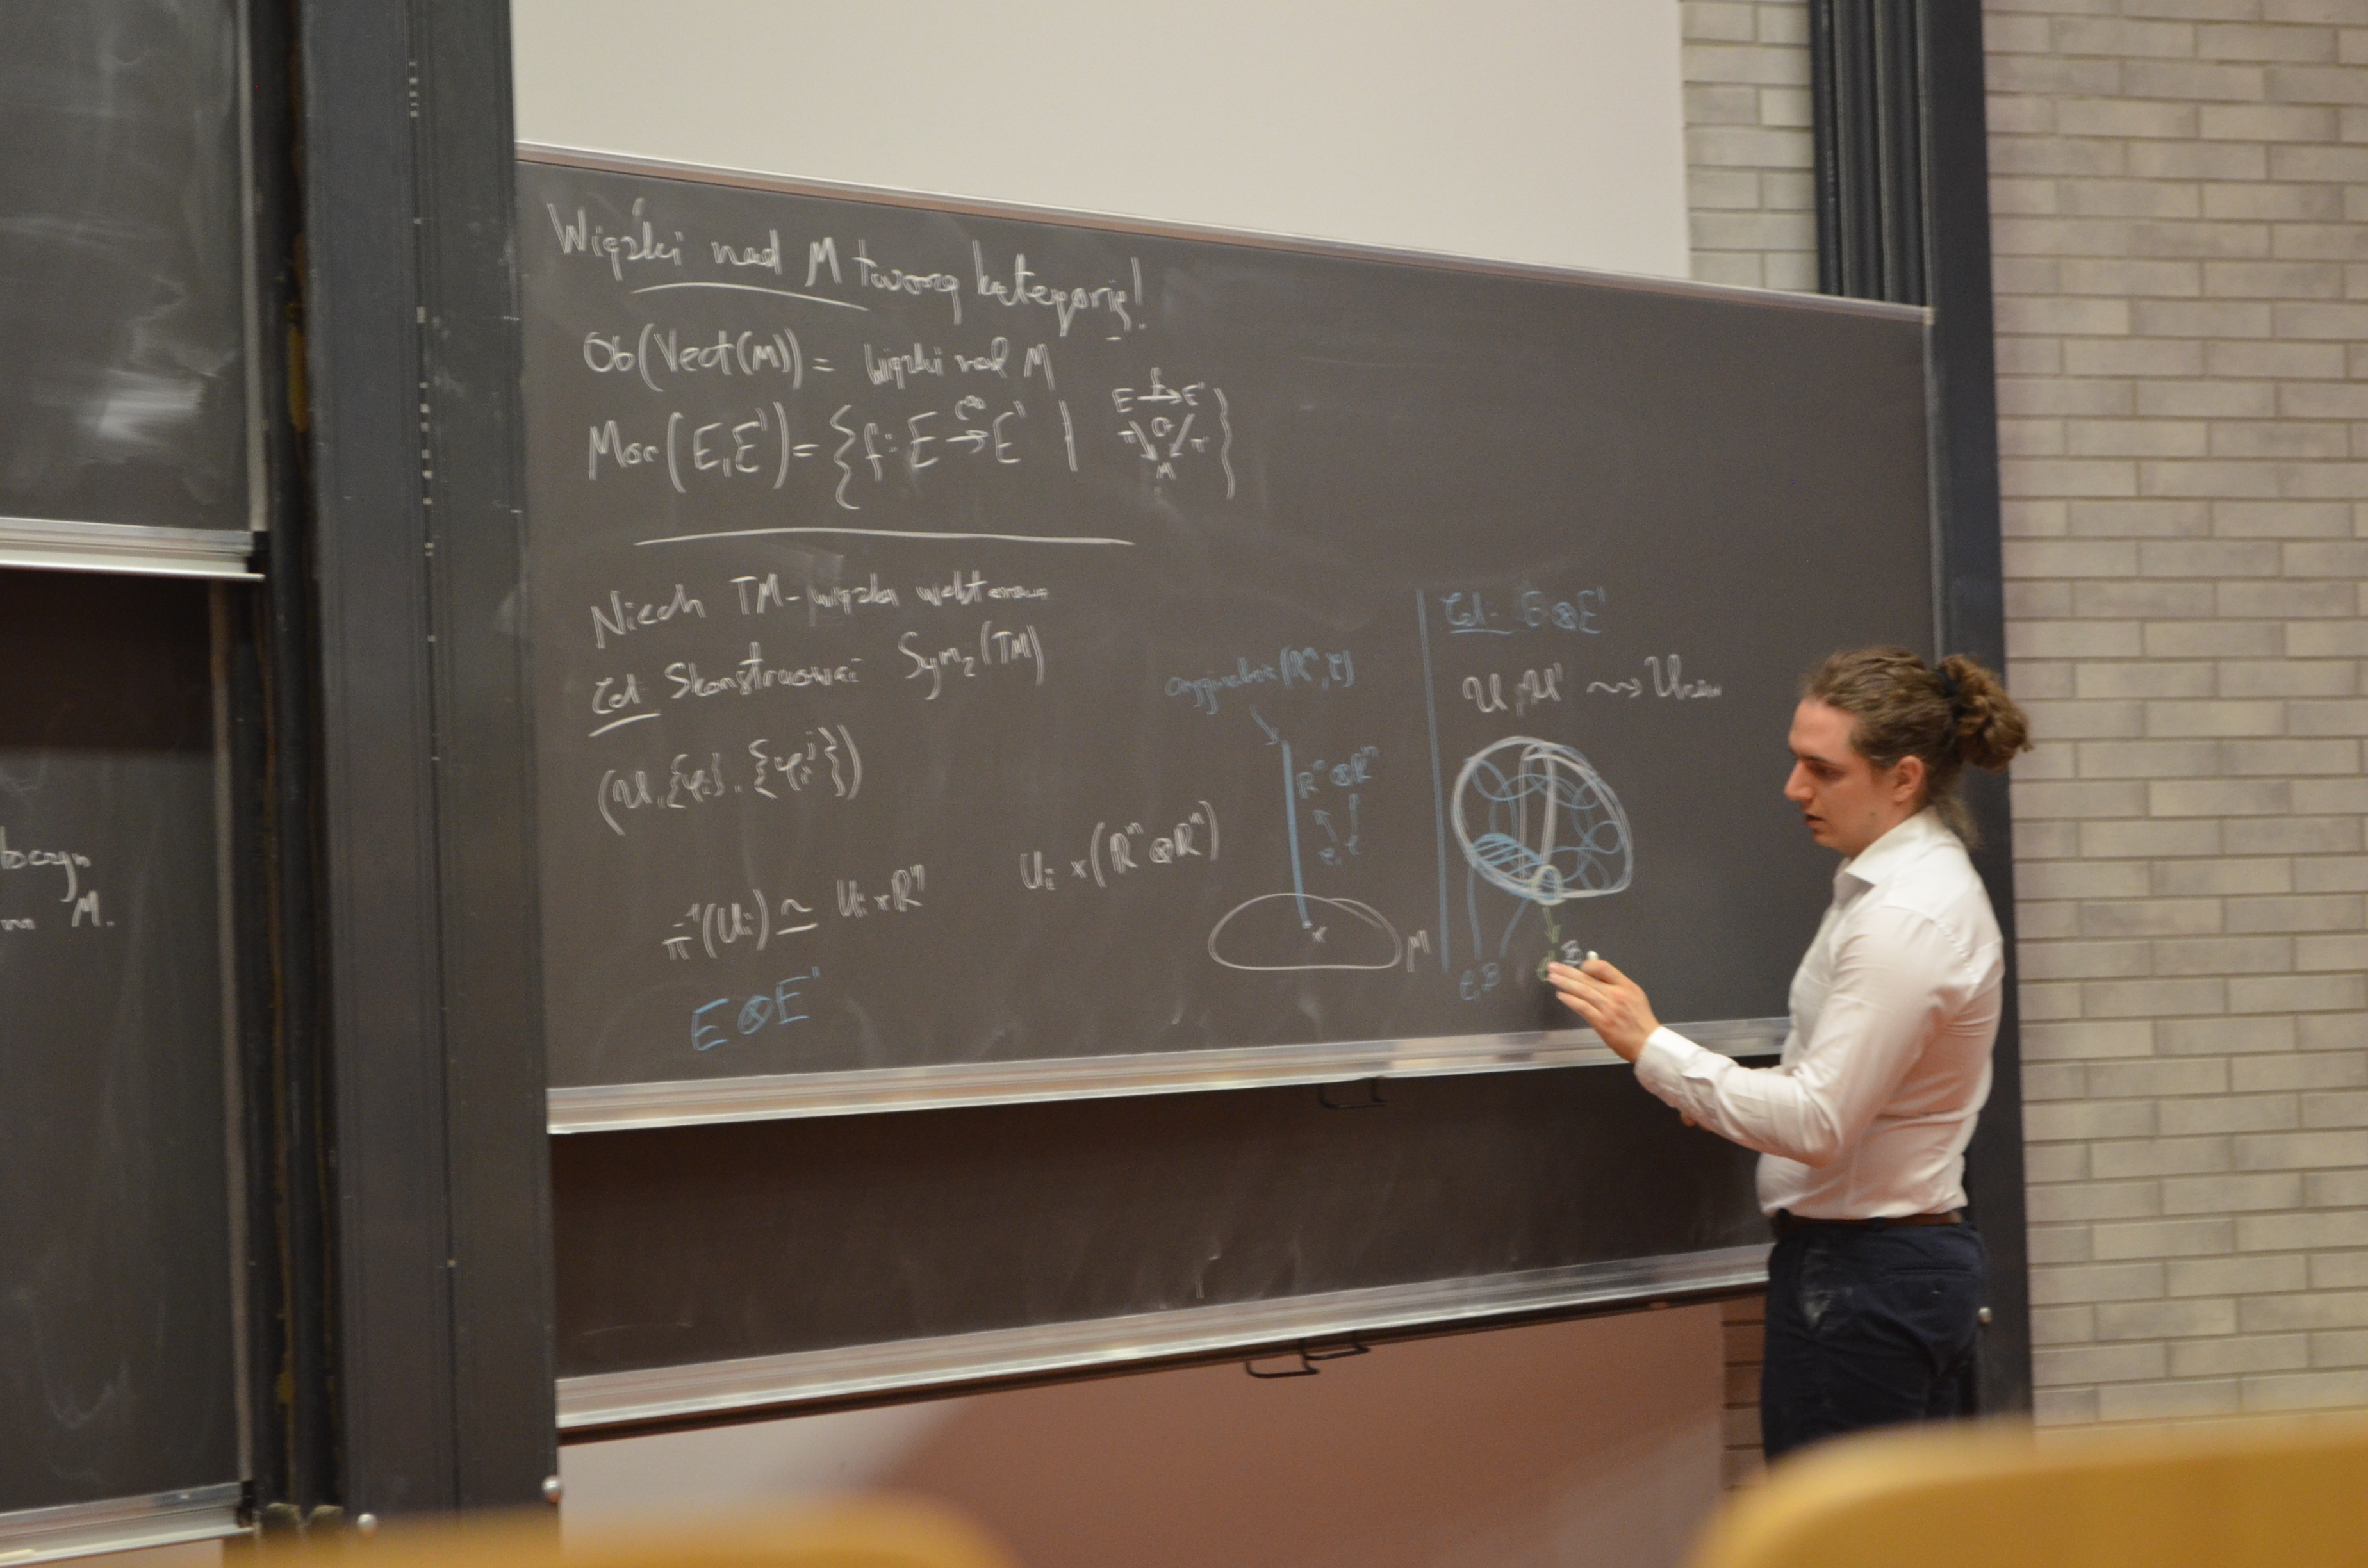 Wiązki nad M tworzą kategorię!
Ob(Vect(M)) = wiązki nad M
Mor(E,E') = {f: E →^{C^∞} E' |
E →^f E'
π ↘ ↻ ↙ π'
M
}
Niech TM - wiązka wektorowa
Cel: Skonstruować Sym₂(TM)
(U, {φᵢ}, {φᵢʲ})
π⁻¹(Uᵢ) ≃ Uᵢ × Rⁿ
Uᵢ × (Rⁿ ⊗ Rⁿ)
E ⊗ E'
Rⁿ ⊗ Rⁿ
x
M
Cel: E ⊗ E'
U, U' ⇝
M.